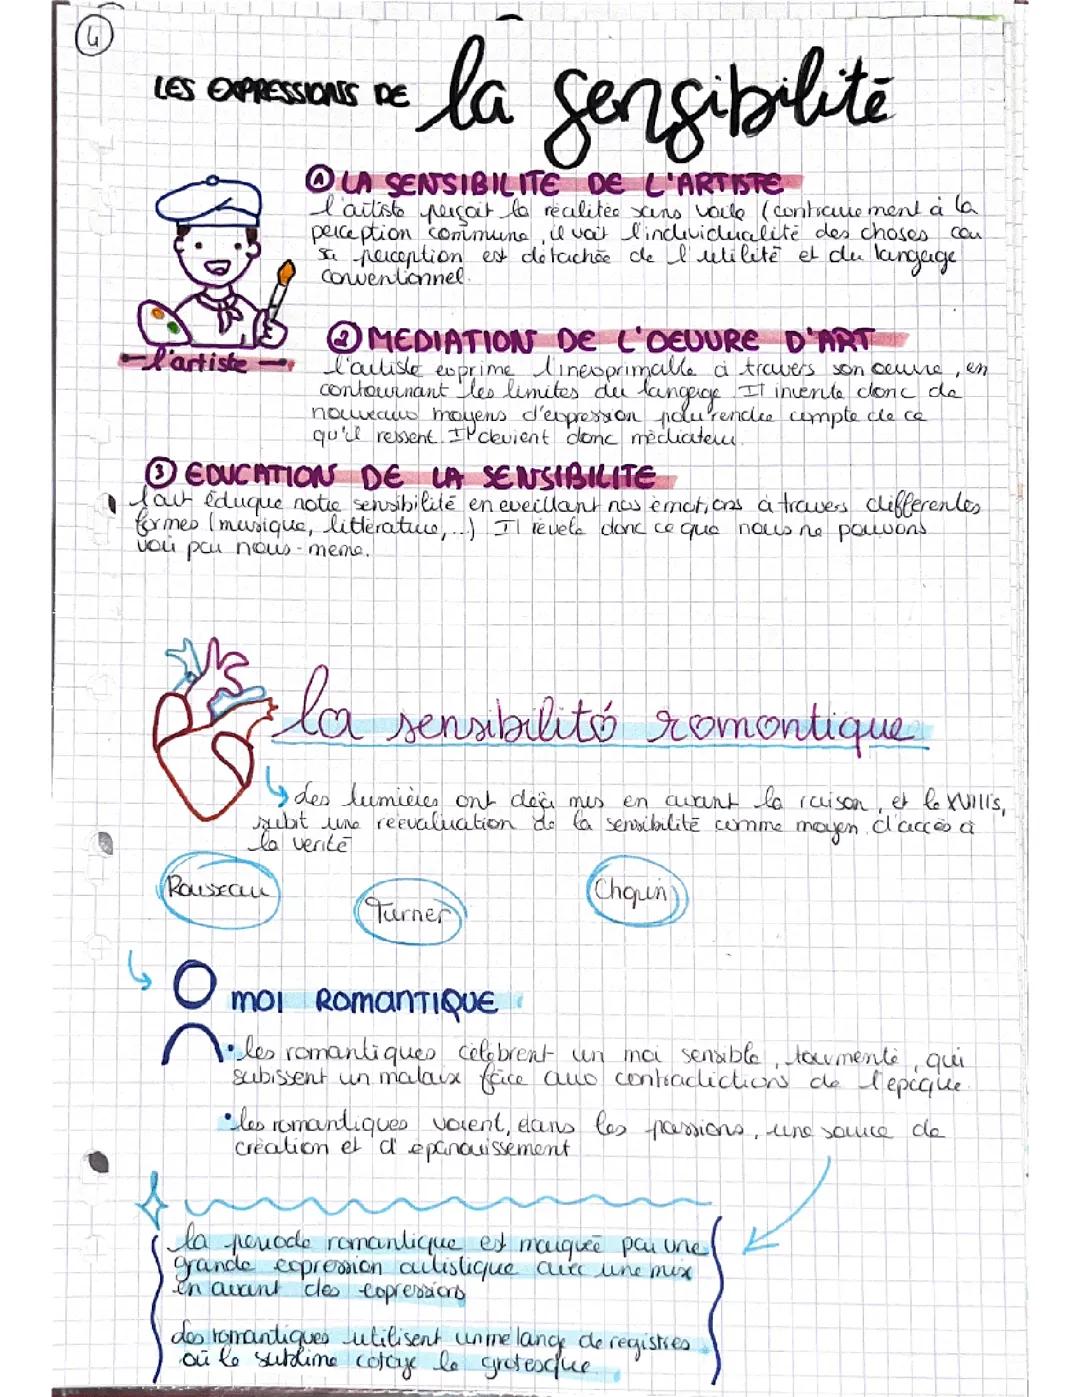 4
LES EXPRESSIONS DE la sensibilité
① LA SENSIBILITE DE L'ARTISTE
l'artiste perçoit la réalitée sans voile (contrairement à la
perception commune, il voit l'individualité des choses car
sa perception est détachée de l'utilité et du langage
conventionnel.
l'artiste
② MEDIATION DE L'OEUVRE D'ART
l'artiste exprime l'inexprimable à travers son oeuvre, en
contournant les limites du langage. Il invente donc de
nouveaux moyens d'expression pour rendre compte de ce
qu'il ressent. Il devient donc médiateur.
③ EDUCATION DE LA SENSIBILITE
l'art éduque notre sensibilité en eveillant nos émotions à travers differentes
formes (musique, littérature,...) Il révèle donc ce que nous ne pouvons
voir par nous-meme.
la sensibilité romantique
des lumières ont déjà mis en avant la raison, et le XVIIIs,
subit une réévaluation de la sensibilité comme moyen d'accès à
la verité
Rousseau
Turner
Chopin
MOI ROMANTIQUE
• les romantiques célèbrent un moi sensible, tourmenté, qui
subissent un malaix face aux contradictions de l'epoque.
• les romantiques voient, dans les passions, une source de
création et d'épanouissement
la periode romantique est marquée par une
grande expression artistique avec une mix
en avant des expressions
des romantiques utilisent un mélange de registres
où le sublime cotoye le grotesque.